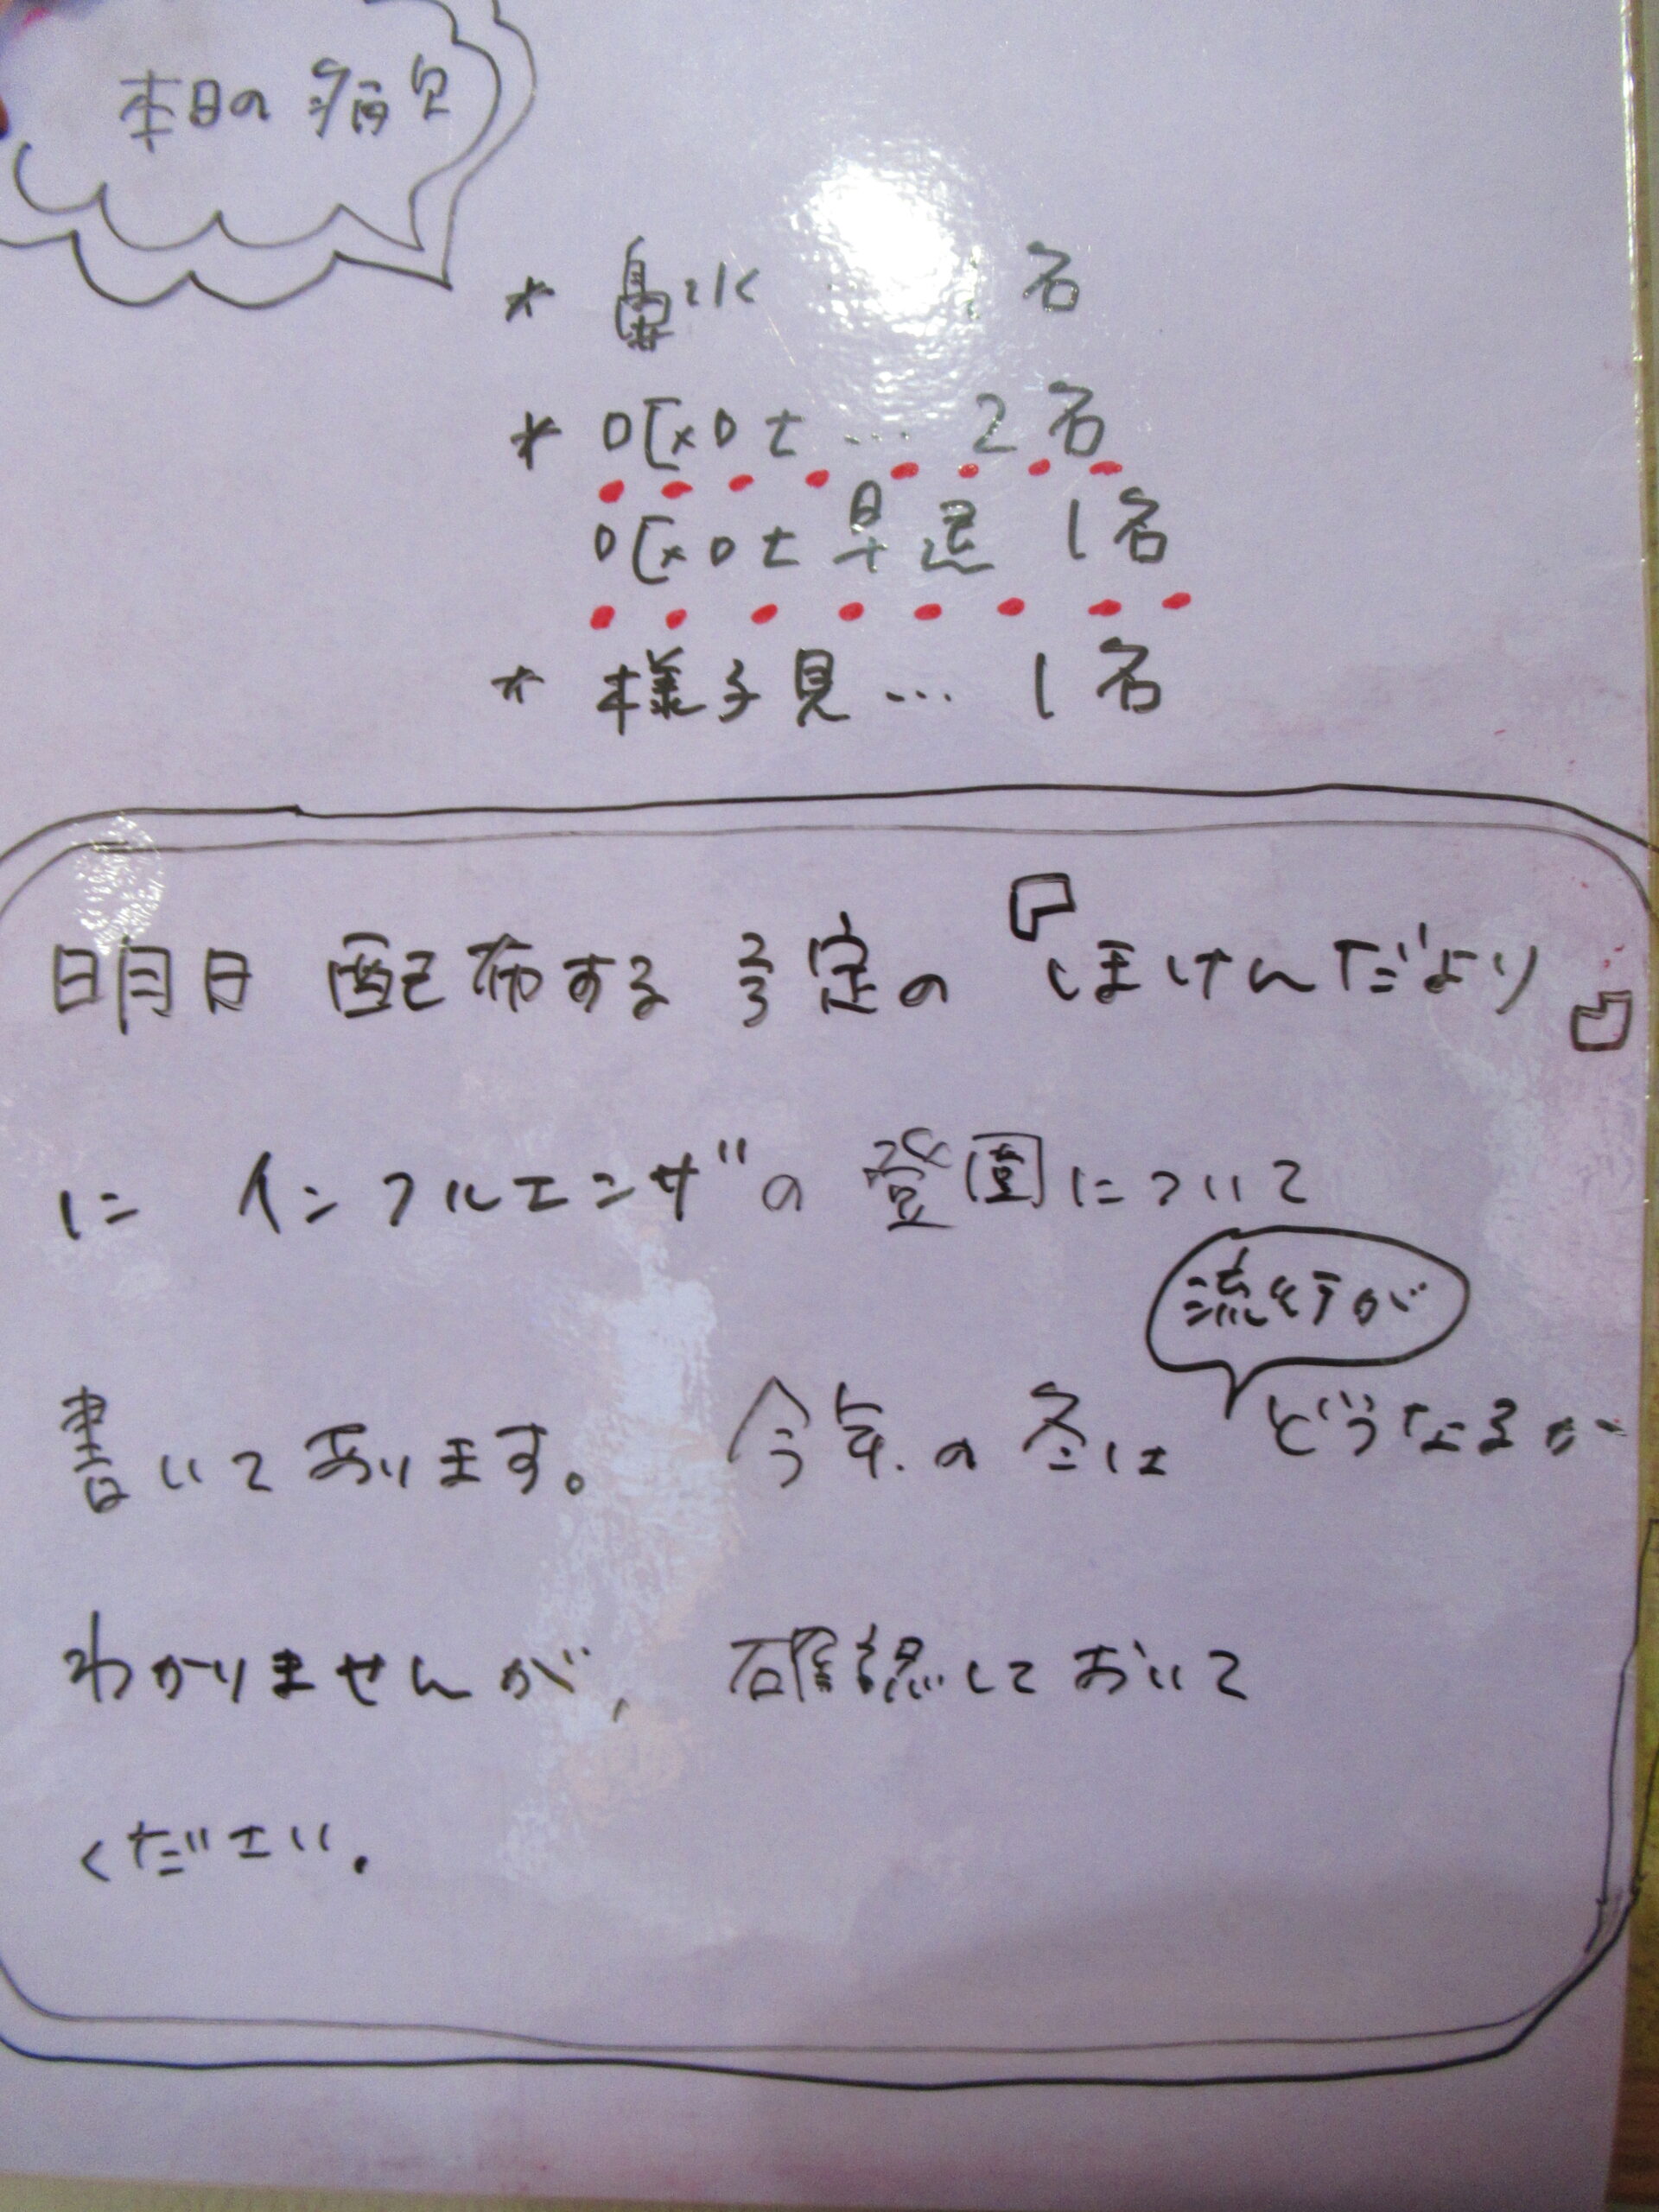 本日の病欠
* 鼻水 名
* 嘔吐 … 2名
嘔吐 早退 1名
* 様子見 … 1名
明日 配布する 予定の 『ほけんだより』
に インフルエンザの 登園について
流行が
書いてあります。 今年の 冬は どうなるか
わかりませんが、 確認しておいて
ください.